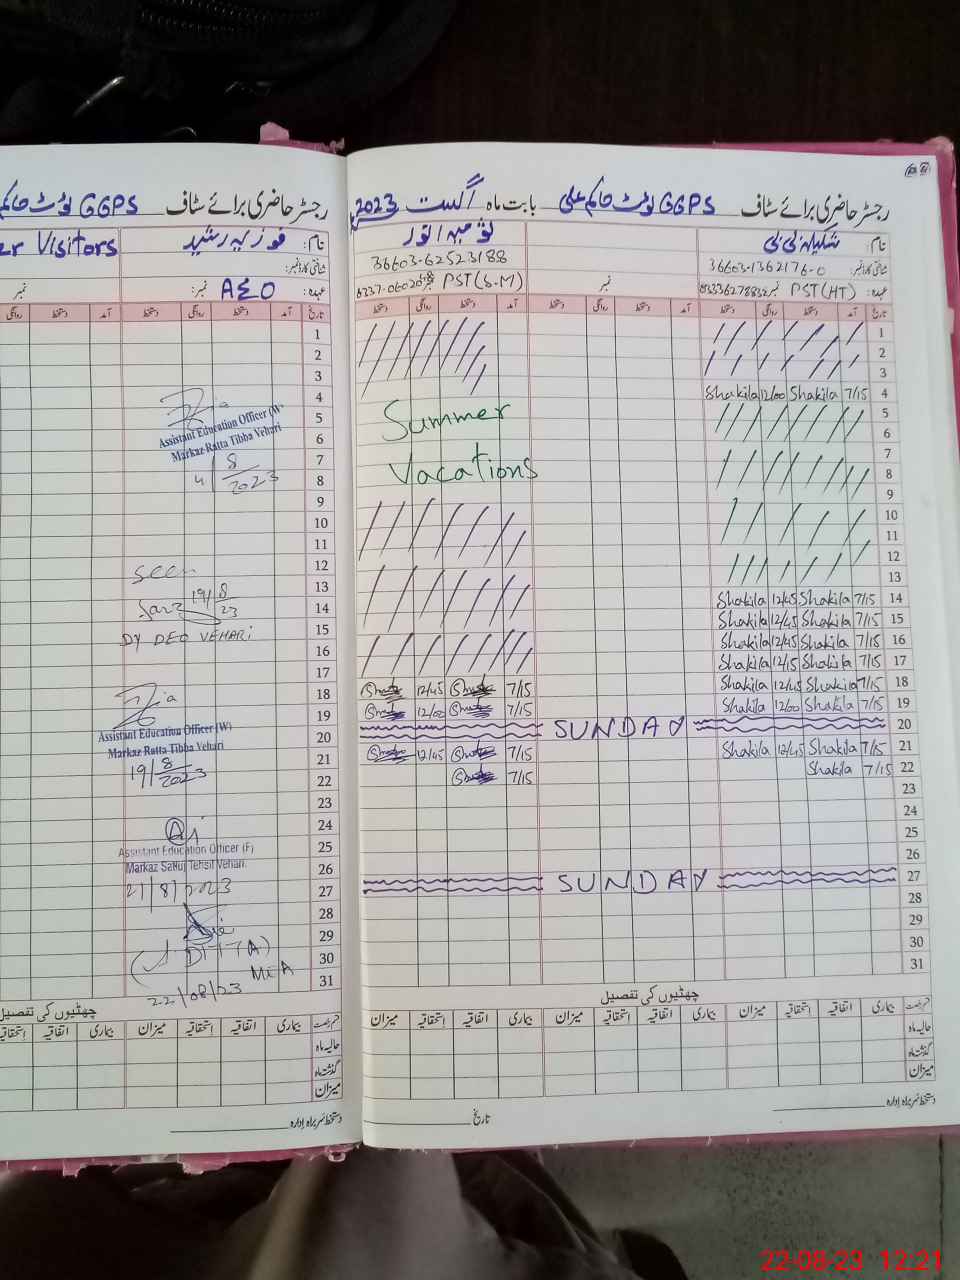 رجسٹر حاضری برائے سٹاف GGPS لوٹ حاکم
Visitors
نام: فوزیہ رشید
شناختی کارڈ نمبر:
عہدہ: AEO نمبر:
نمبر
تاریخ آمد دستخط روانگی دستخط آمد دستخط روانگی
1
2
3
4
5
6
7
8
9
10
11
12
13
14
15
16
17
18
19
20
21
22
23
24
25
26
27
28
29
30
31
Assistant Education Officer (W)
Markaz Ratta Tibba Vehari
4/8/2023
Seen
19/8/23
DY DEO VEHARI
Assistant Education Officer (W)
Markaz Ratta Tibba Vehari
19/8/2023
Assistant Education Officer (F)
Tehsil Vehari.
21/8/2023
MEA
22/08/23
چھٹیوں کی تفصیل
بیماری اتفاقیہ استحقاقیہ میزان بیماری اتفاقیہ استحقاقیہ
حالیہ ماہ
گذشتہ ماہ
میزان
دستخط سربراہ ادارہ
رجسٹر حاضری برائے سٹاف GGPS لوٹ حاکم علی بابت ماہ اگست 2023
نام: شکیلہ بی بی
شناختی کارڈ نمبر: 36603-1362176-0
عہدہ: PST(HT) نمبر
نمبر
36603-62523188
PST(S-M)
تاریخ آمد دستخط روانگی دستخط آمد دستخط روانگی دستخط آمد دستخط روانگی دستخط
1
2
3
4 7/15 Shakila 12/00 Shakila
Summer
5
6
Vacations
7
8
9
10
11
12
13
14 7/15 Shakila 12/45 Shakila
15 7/15 Shakila 12/45 Shakila
16 7/15 Shakila 12/45 Shakila
17 7/15 Shakila 12/15 Shakila
18 7/15 Shakila 12/45 Shakila 7/15 12/45
19 7/15 Shakila 12/00 Shakila 7/15 12/00
20 SUNDAY
21 7/15 Shakila 12/45 Shakila 7/15 12/45
22 7/15 Shakila 7/15
23
24
25
26
27 SUNDAY
28
29
30
31
چھٹیوں کی تفصیل
قسم رخصت بیماری اتفاقیہ استحقاقیہ میزان بیماری اتفاقیہ استحقاقیہ میزان بیماری اتفاقیہ استحقاقیہ میزان
حالیہ ماہ
گذشتہ ماہ
میزان
دستخط سربراہ ادارہ
تاریخ
22-08-23 12:21